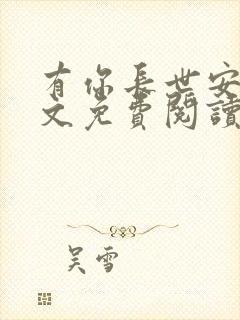 有你長世安
文免費閱讀
吴雪